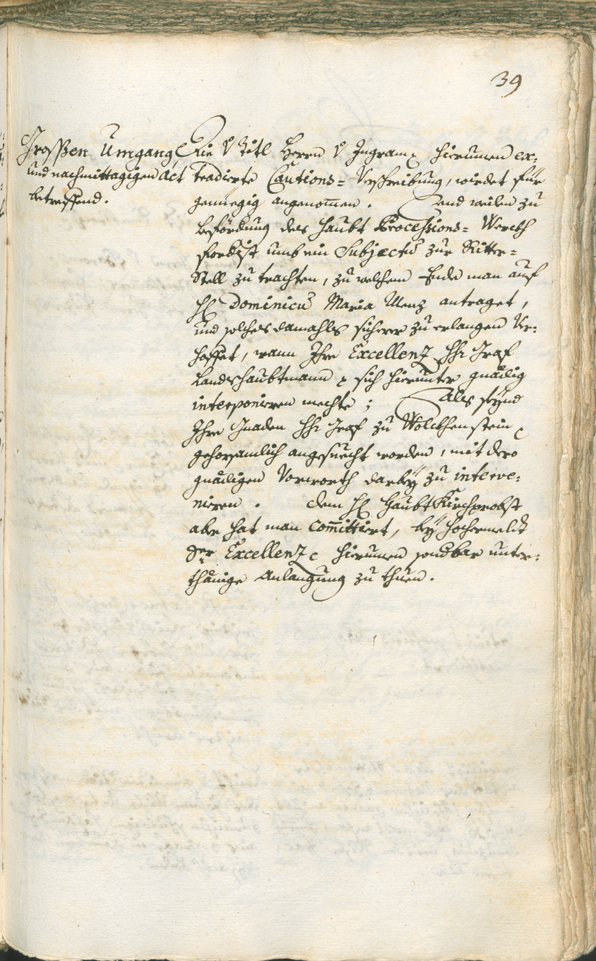 39
Grossen Umgang,
und nachmittagigen Act
betreffend.
Die V Titl Herrn V Ingram hierinnen ex:
tradirte Cautions= Verschreibung, wirdet für
genuegig angenommen. Und weilen zu
beförderung des Haubt Processions= Werckh
umb ein Subjectum zur Ritter=
Stell zu trachten, zu welchem Ende man auf
H: Dominicus Maria Menz antraget,
und solches damahls sicherer zu erlangen ver:
hoffet, wann Ihro Excellenz H: Graf
Landtshaubtmann sich hierunter gnädig
interponieren mechte; Als seynd
Ihro Gnaden H: Graf zu Wolckhenstein
gehorsamlich angesuecht worden, mit dero
gnädigen Vorworth darbey zu interve:
niren. dem H: Haubt Kirchprobst
aber hat man committiert, bey hochermelt
Sr Excellenz hierinnen sonderbar unter:
thänige Anlangung zu thuen.